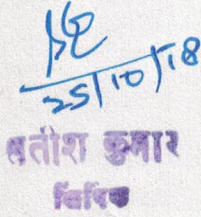 25/10/18
सतीश कुमार
लिपिक